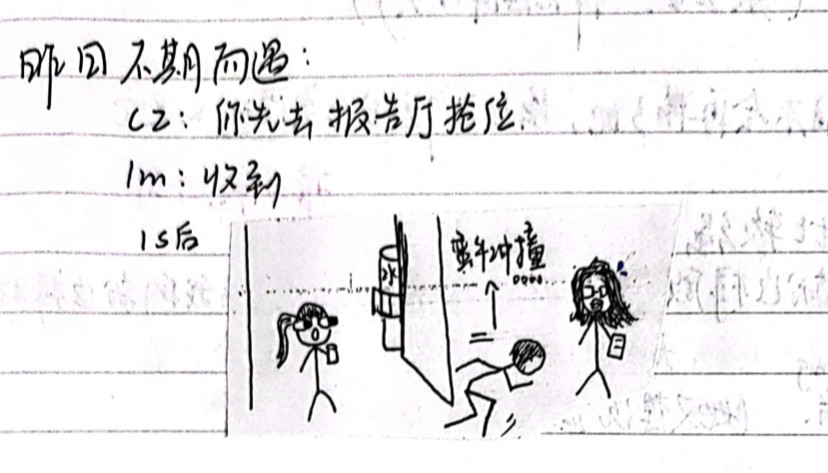 昨日不期而遇：
CZ：你先去报告厅抢位.
lm：收到
1s后
水
蛮牛冲撞